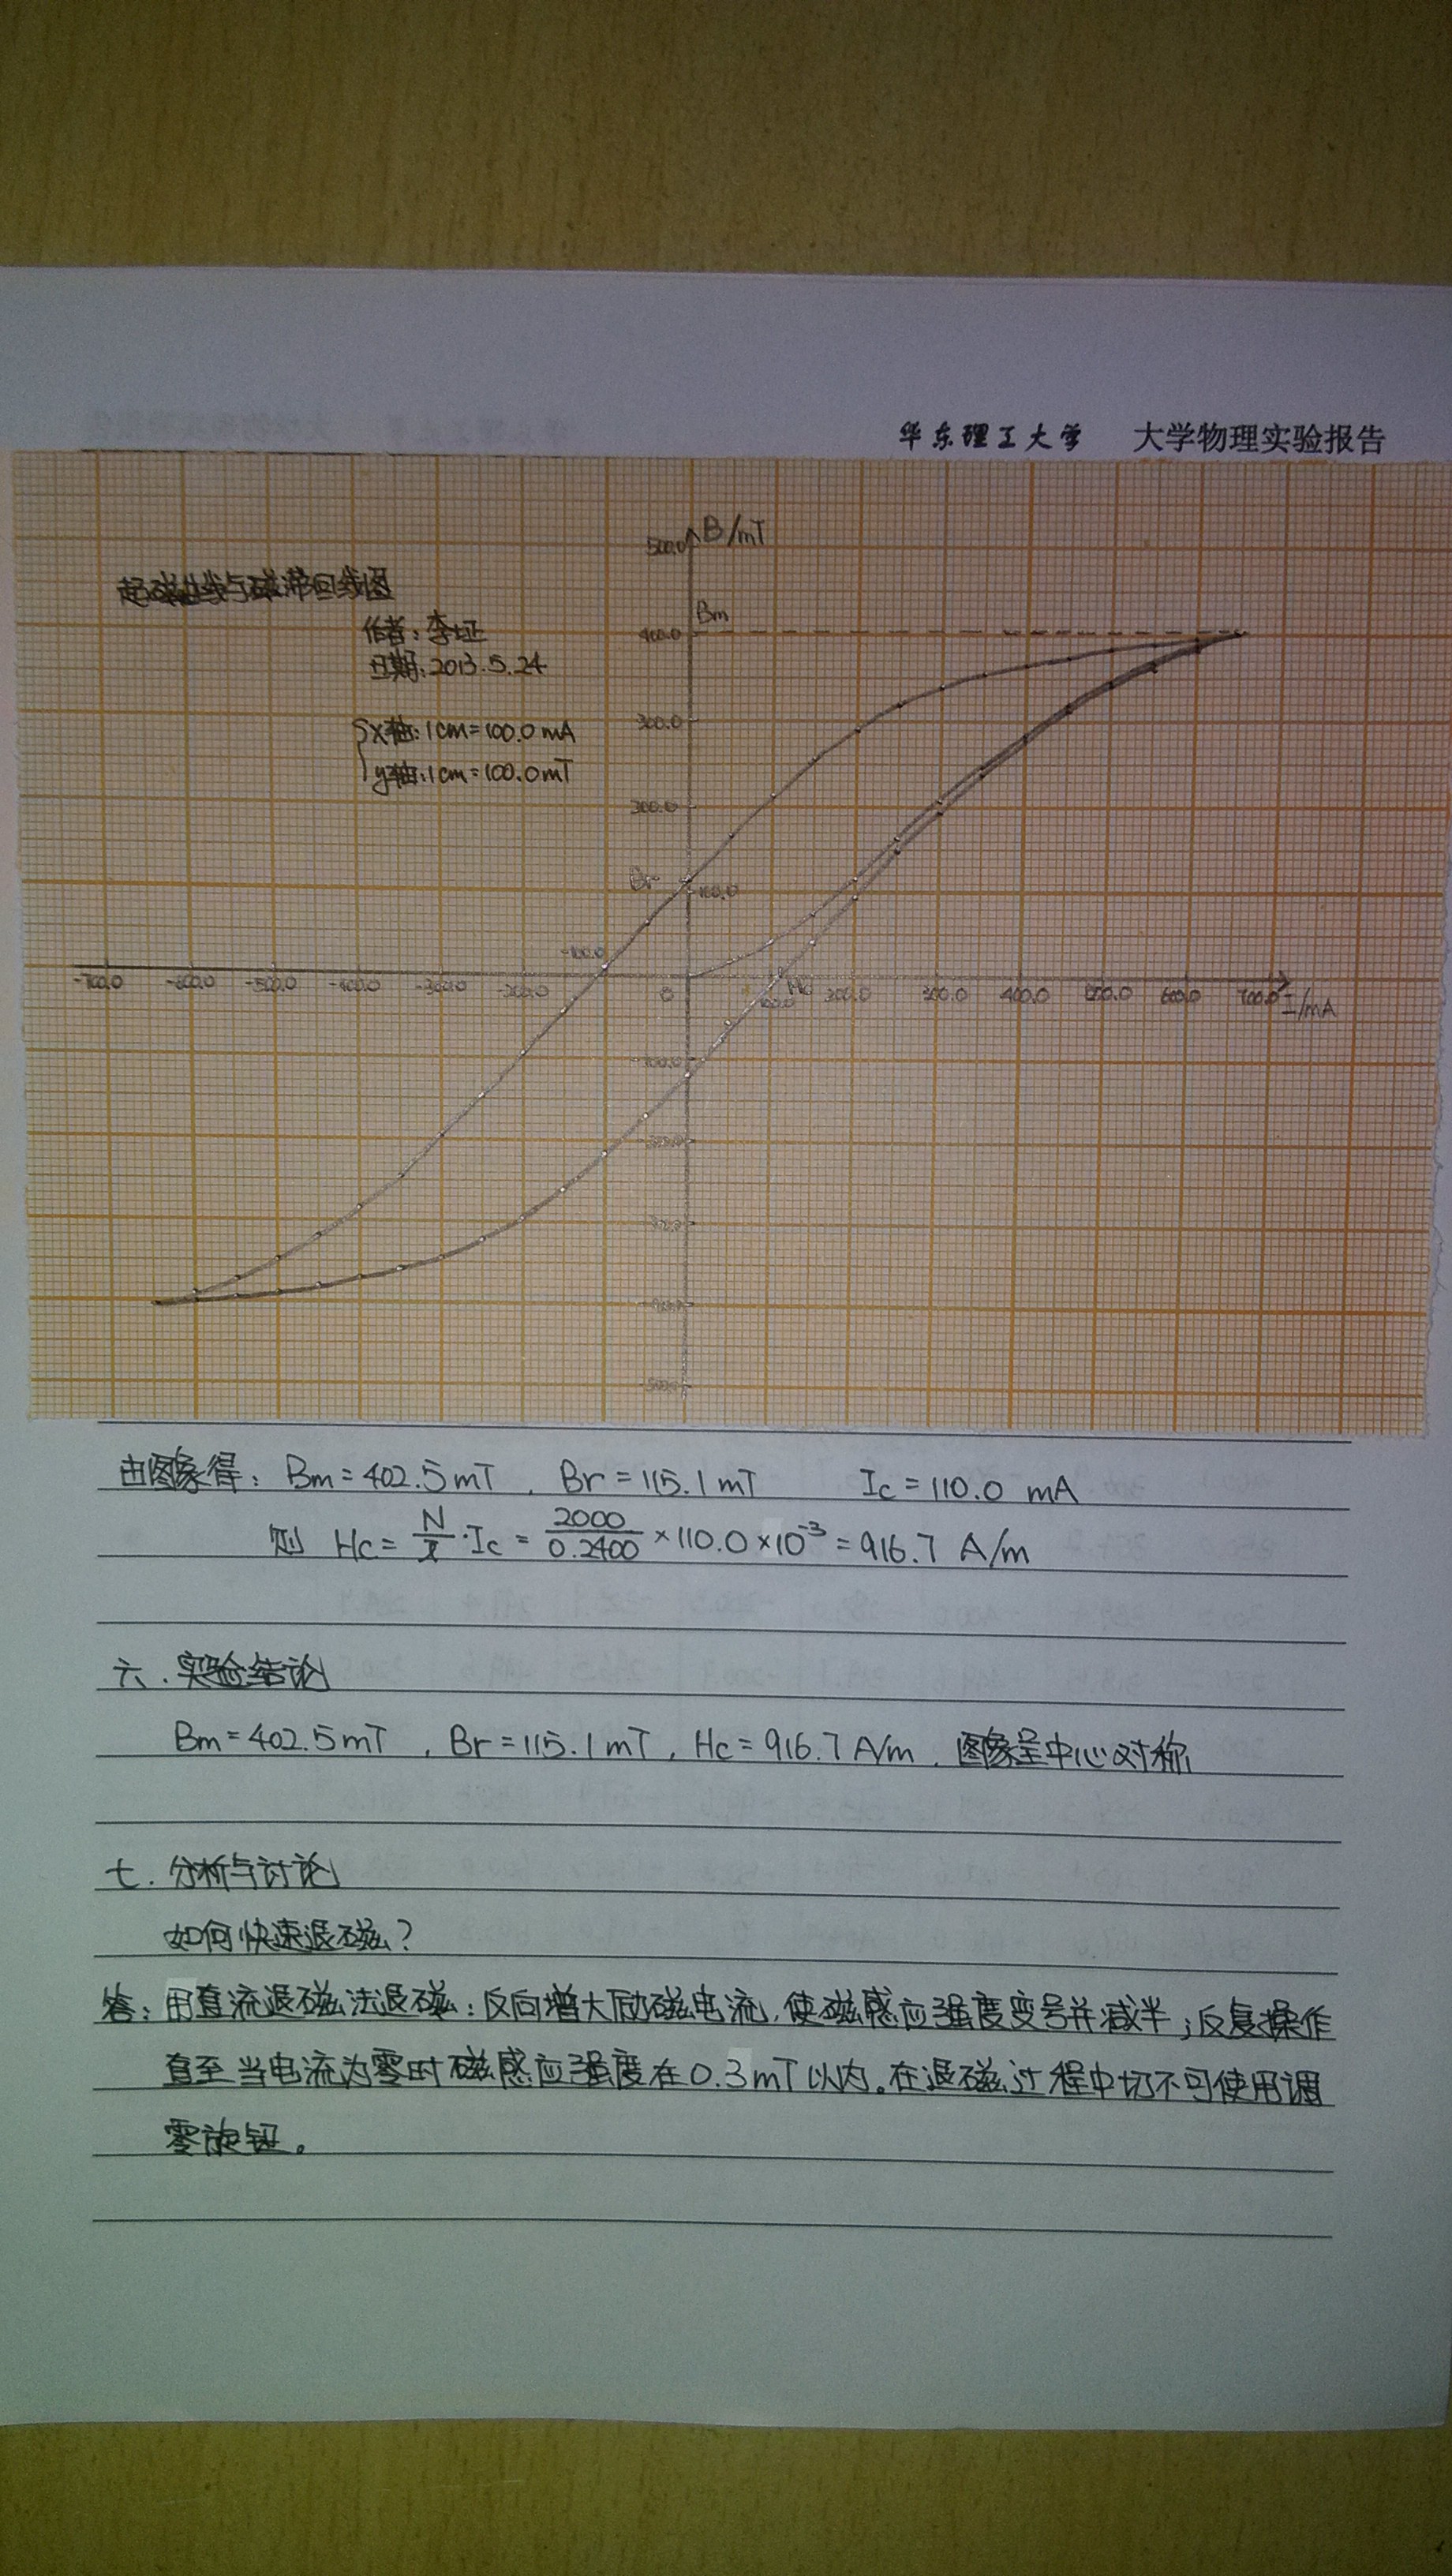 华东理工大学 大学物理实验报告
起磁曲线与磁滞回线图
作者：李证
日期：2013.5.24
x轴：1cm=100.0mA
y轴：1cm=100.0mT
B/mT
500.0
Bm
400.0
300.0
300.0
Br
100.0
-100.0
-700.0 -600.0 -500.0 -400.0 -300.0 -200.0 0 100.0 Hc 200.0 300.0 400.0 500.0 600.0 700.0 I/mA
-100.0
-200.0
-300.0
-400.0
-500.0
由图象得：Bm=402.5mT，Br=115.1mT Ic=110.0 mA
则 Hc=N/l̄·Ic=2000/0.2400×110.0×10⁻³=916.7 A/m
六．实验结论
Bm=402.5mT，Br=115.1mT，Hc=916.7A/m．图象呈中心对称
七．分析与讨论
如何快速退磁？
答：用直流退磁法退磁：反向增大励磁电流，使磁感应强度变号并减半；反复操作
直至当电流为零时磁感应强度在0.3mT以内。在退磁过程中切不可使用调
零旋钮。